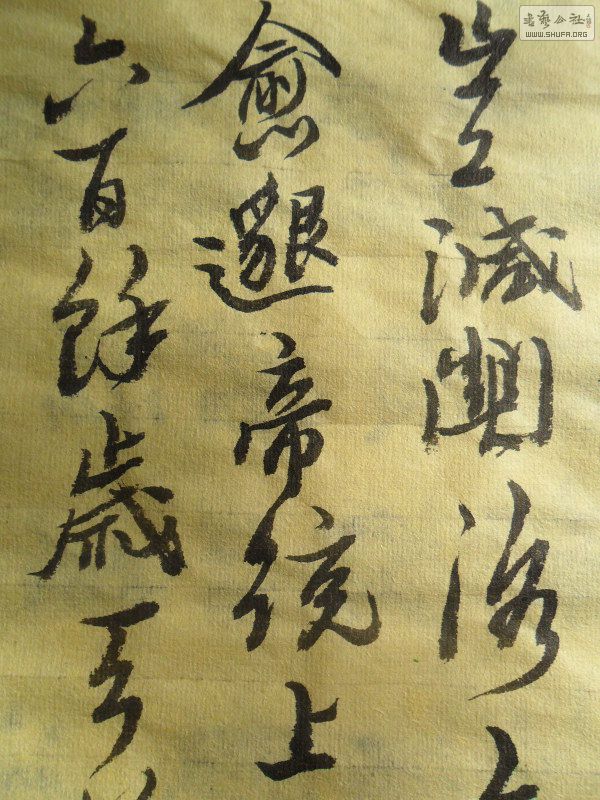 豈減關洛
愈邈帝統上
六百餘歲
書藝公社
WWW.SHUFA.ORG